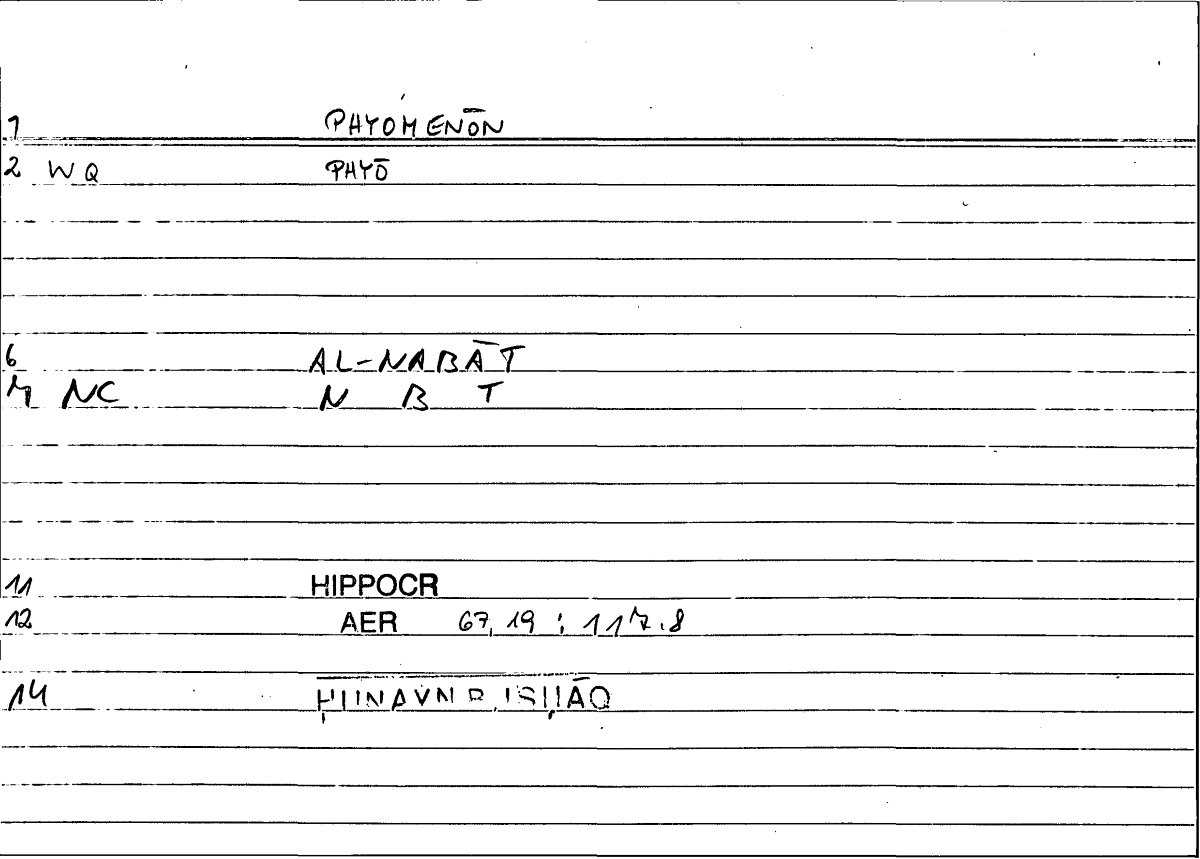 1 PHYOMENŌN
2 WQ PHYŌ
6 AL-NABĀT
7 NC N B T
11 HIPPOCR
12 AER 67,19 : 117.8
14 ḤUNAYN B. ISḤĀQ